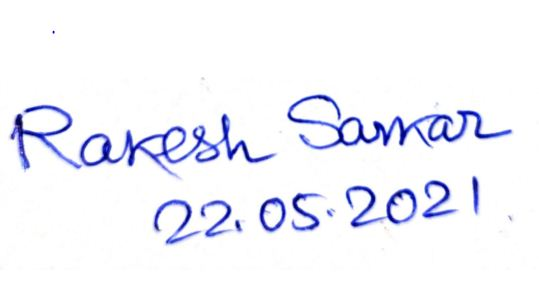 Rakesh Sarkar
22.05.2021